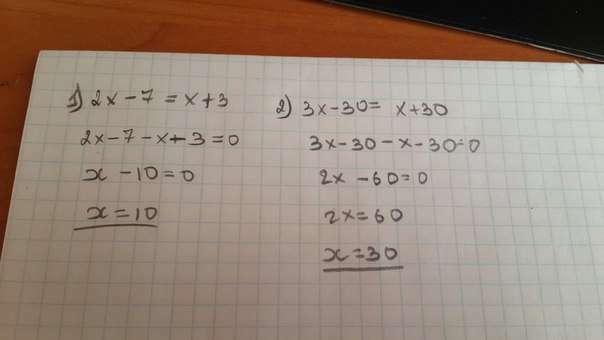 1) 2x - 7 = x + 3
2x - 7 - x - 3 = 0
x - 10 = 0
x = 10
2) 3x - 30 = x + 30
3x - 30 - x - 30 = 0
2x - 60 = 0
2x = 60
x = 30